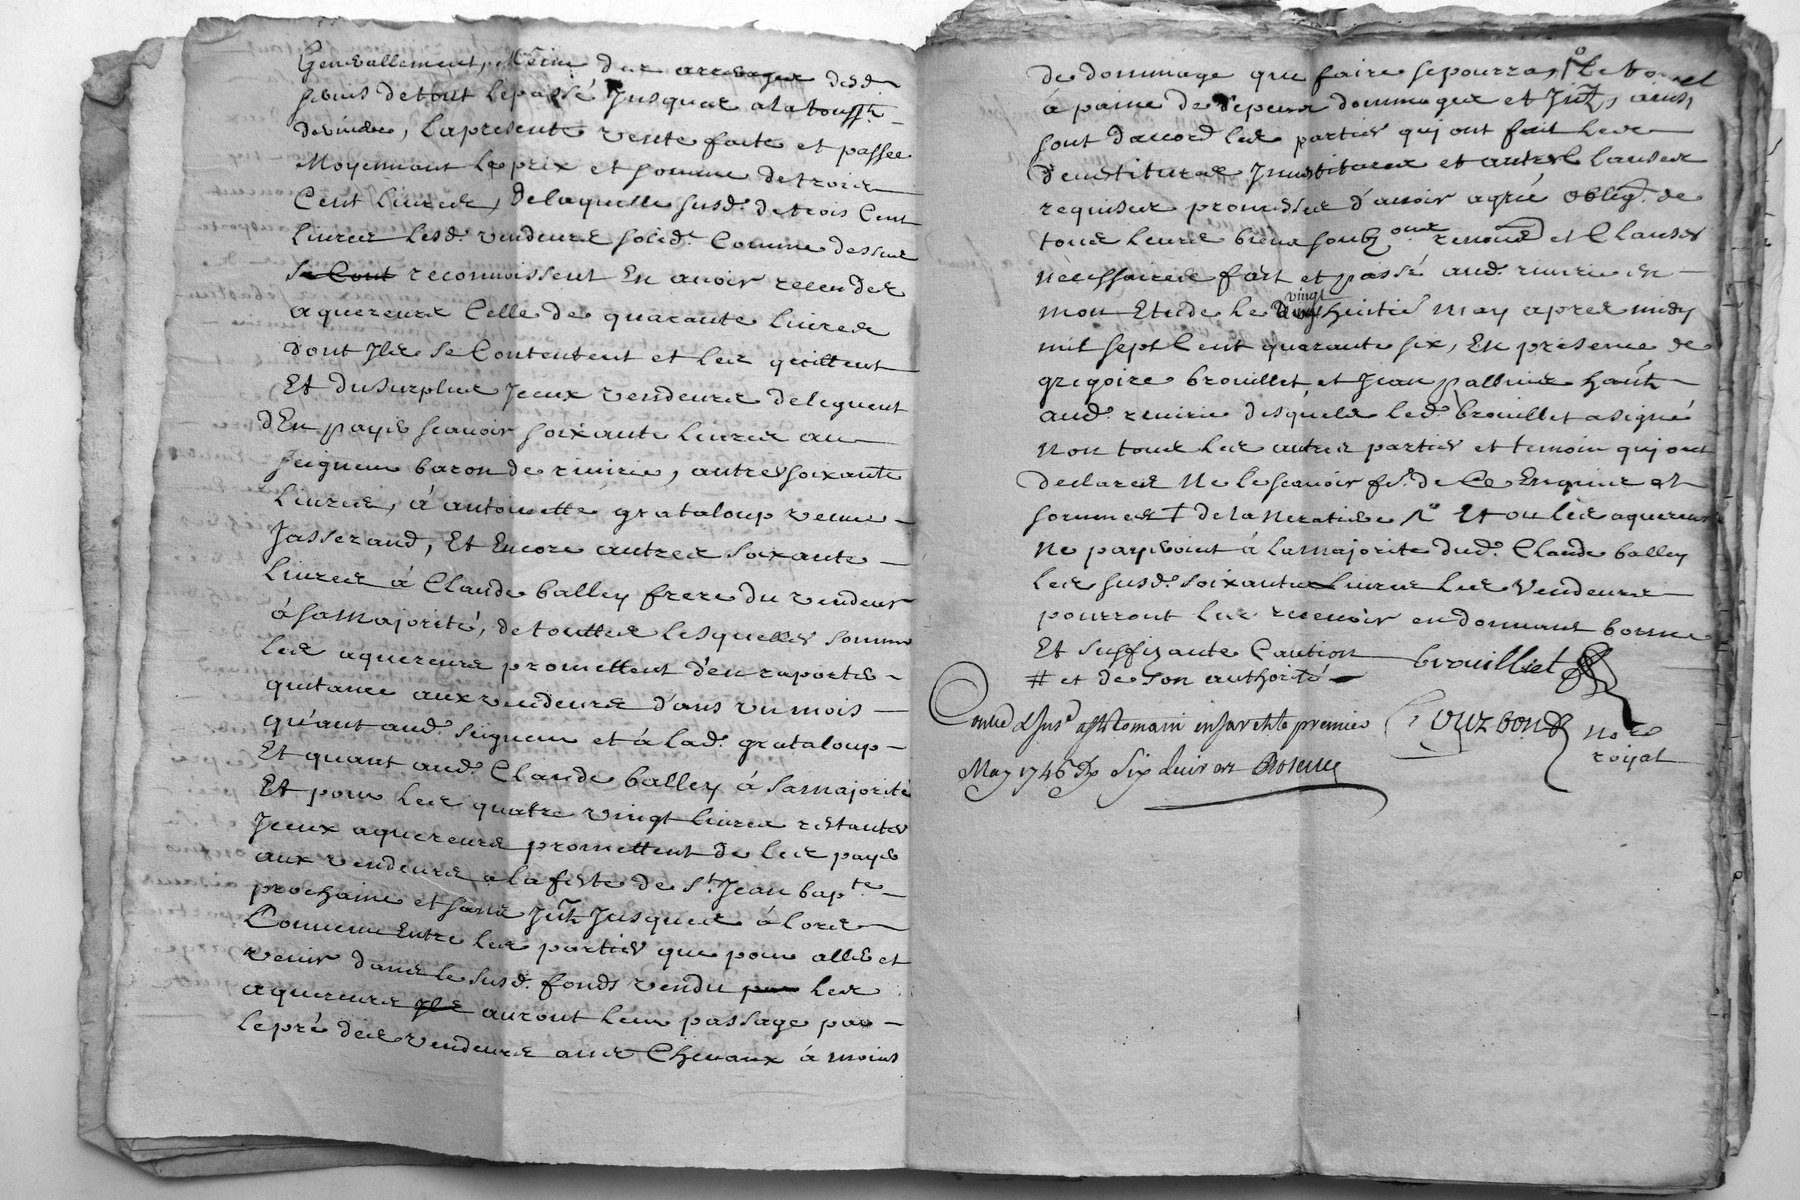 Generallement, des arrerages desd.
servis de tout le passé Jusques a la toussts
derniere, la presente vente faite et passée
Moyennant le prix et somme de trois
Cent livres, de laquelle susd. de trois Cent
livres lesd. vendeurs solidt. Comme dessus
se Cont reconnoissent En avoir receu des
aquereurs Celle de quarante livres
dont Ils se Contentent et les quittent
Et du surplus Jceux vendeurs deleguent
d'En payer sçavoir soixante livres au
seigneur baron de riverie, autres soixante
livres, à antoinette grataloup veuve
Jasserand, Et Encore autres soixante
livres à Claude balley frere du vendeur
à sa majorité, de touttes lesquelles somme
les aquereurs promettent d'en raporter
quitance aux vendeurs d'ans un mois
qu'ant aud. seigneur et à lad. grataloup
Et quant aud. Claude balley à sa majorité
Et pour les quatre vingt livres restantes
Jceux aquereurs promettent de les payer
aux vendeurs a la feste de st. Jean bapte.
prochaine et sans Jnts Jusques à lors
Convenu Entre les parties que pour aller et
venir dans le susd. fonds vendu par les
aquereurs Ils auront leur passage par
le pré des vendeurs avec Chevaux à moins
de dommage que faire se pourra,
à paine de depens dommages et Jnts, ainsy
sont d'accord les parties qui ont fait les
devestitures Jnvestitures et autres Clauses
requises promesses d'avoir agrée obligt. de
tous leurs biens soubz renond et Clauses
nècessaires fait et passé aud. riverie en
mon Etude le vingt huitie may apres midy
mil sept Cent quarante six, En presence de
gregoire brouillet et Jean hants
aud. riverie desquels led. brouillet a signé
non tous les autres parties et temoin qui ont
declarés ne le sçavoir fe. de Ce Enquis et
sommés † de la Et ou les aquereurs
ne payeroint à la majorite dud. Claude balley
les susd. soixante livres les vendeurs
pourront les recevoir en donnant bonne
Et suffizante Caution brouilliet
# et de son authorité
premier
May 1746 Six livres
notre
royal